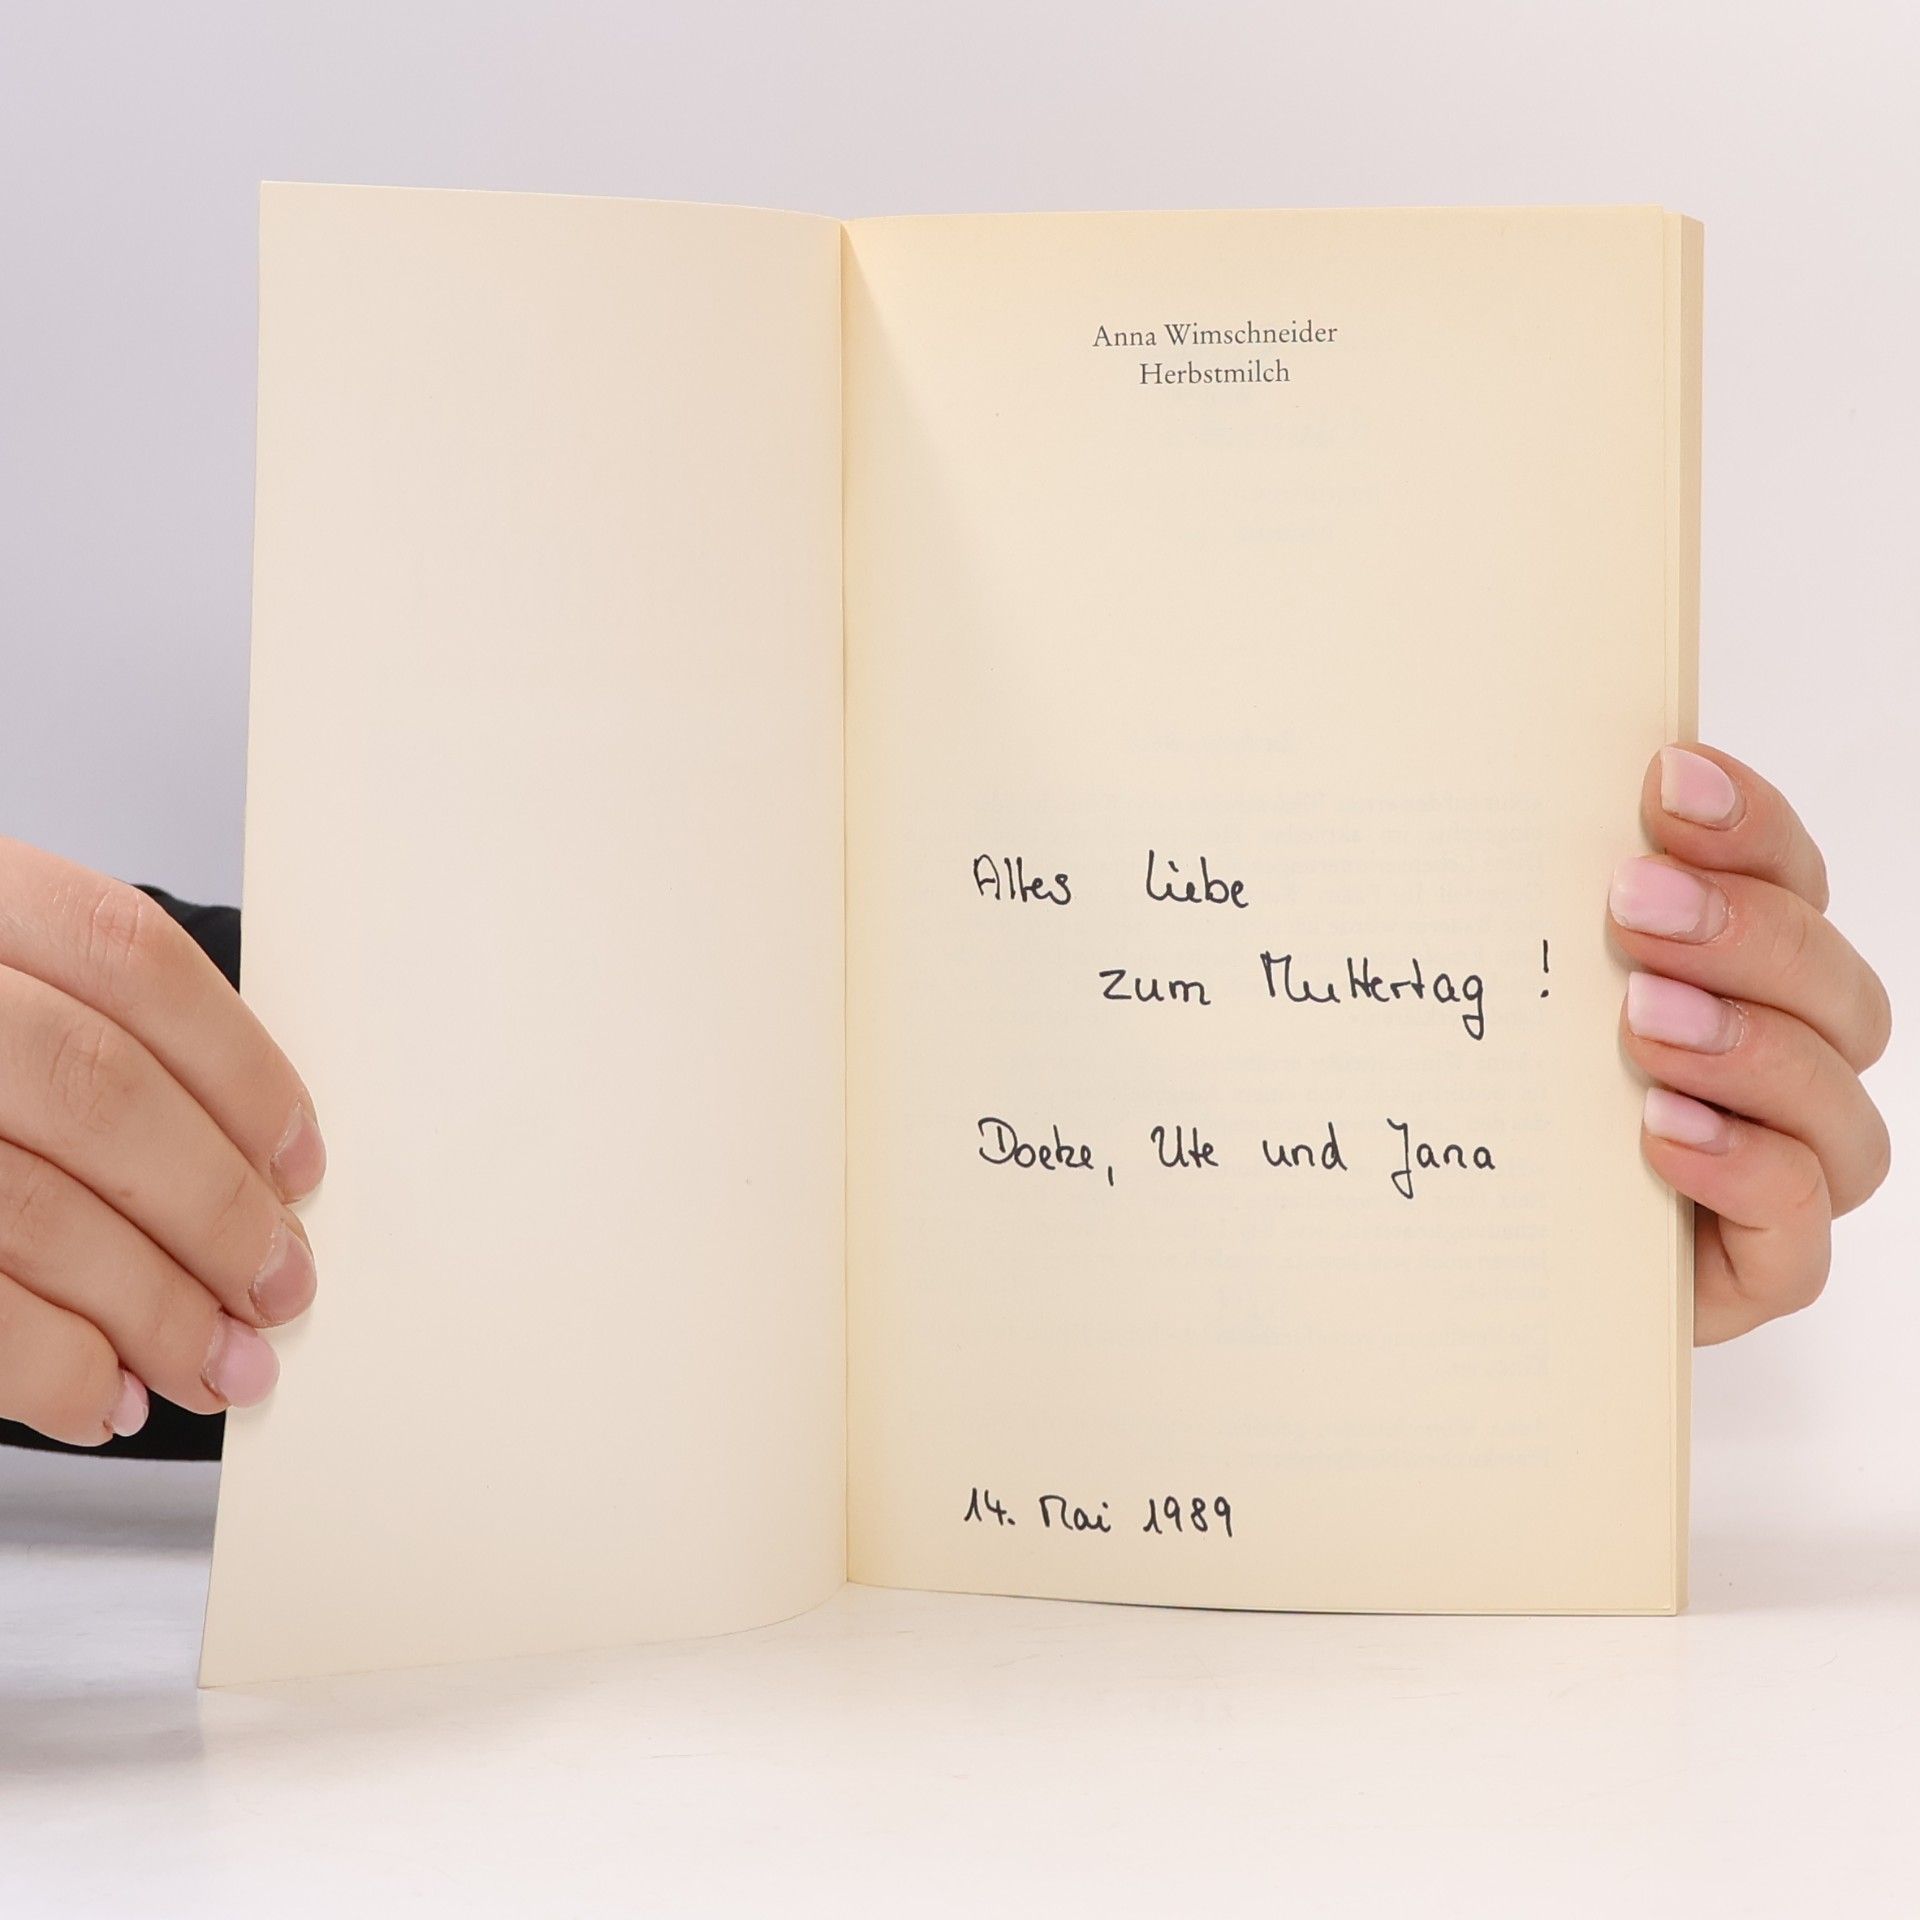 Anna Wimschneider
Herbstmilch
Alles liebe
zum Muttertag !
Doetze, Ute und Jana
14. Mai 1989